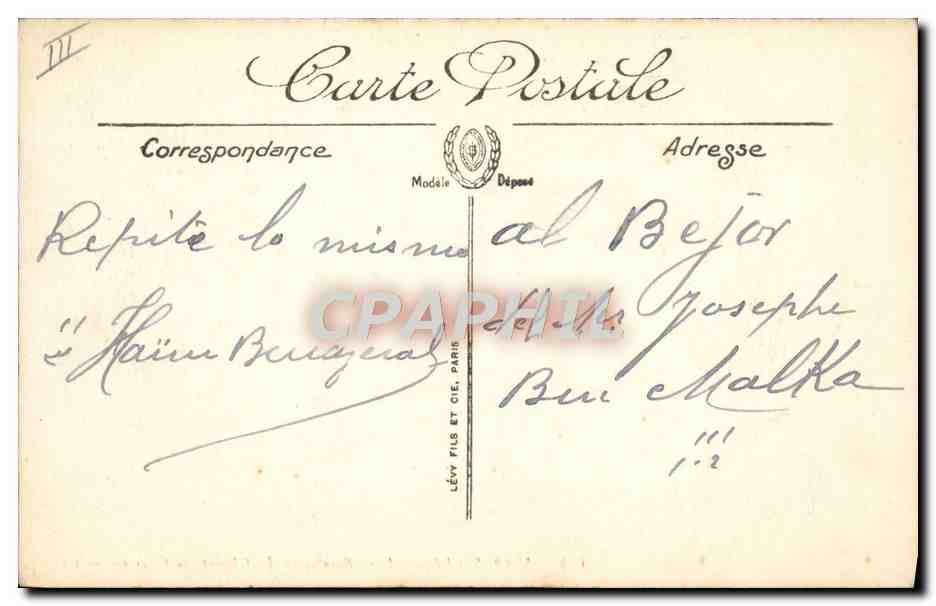 III
Carte Postale
Correspondance
Adresse
Modèle Déposé
Repite lo mismo
Haïm
al Bejor
del Mr. Josephe
Ben Malka
LÉVY FILS ET CIE, PARIS
CPAPHIL